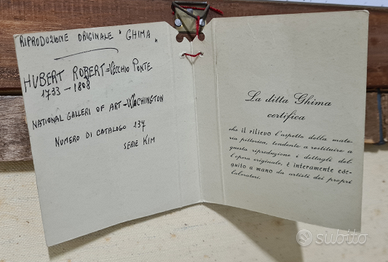 RIPRODUZIONE ORIGINALE "GHIMA"
HUBERT ROBERT = VECCHIO PONTE
1733 - 1808
NATIONAL GALLERI OF ART - WASHINGTON
NUMERO DI CATALOGO 137
SERIE KIM
La ditta Ghima
certifica
che il rilievo e l'aspetto della mate-
ria pittorica, tendente a restituire a
questa riproduzione i dettagli del-
l'opera originale, è interamente ese-
guito a mano da artisti dei propri
laboratori.
subito